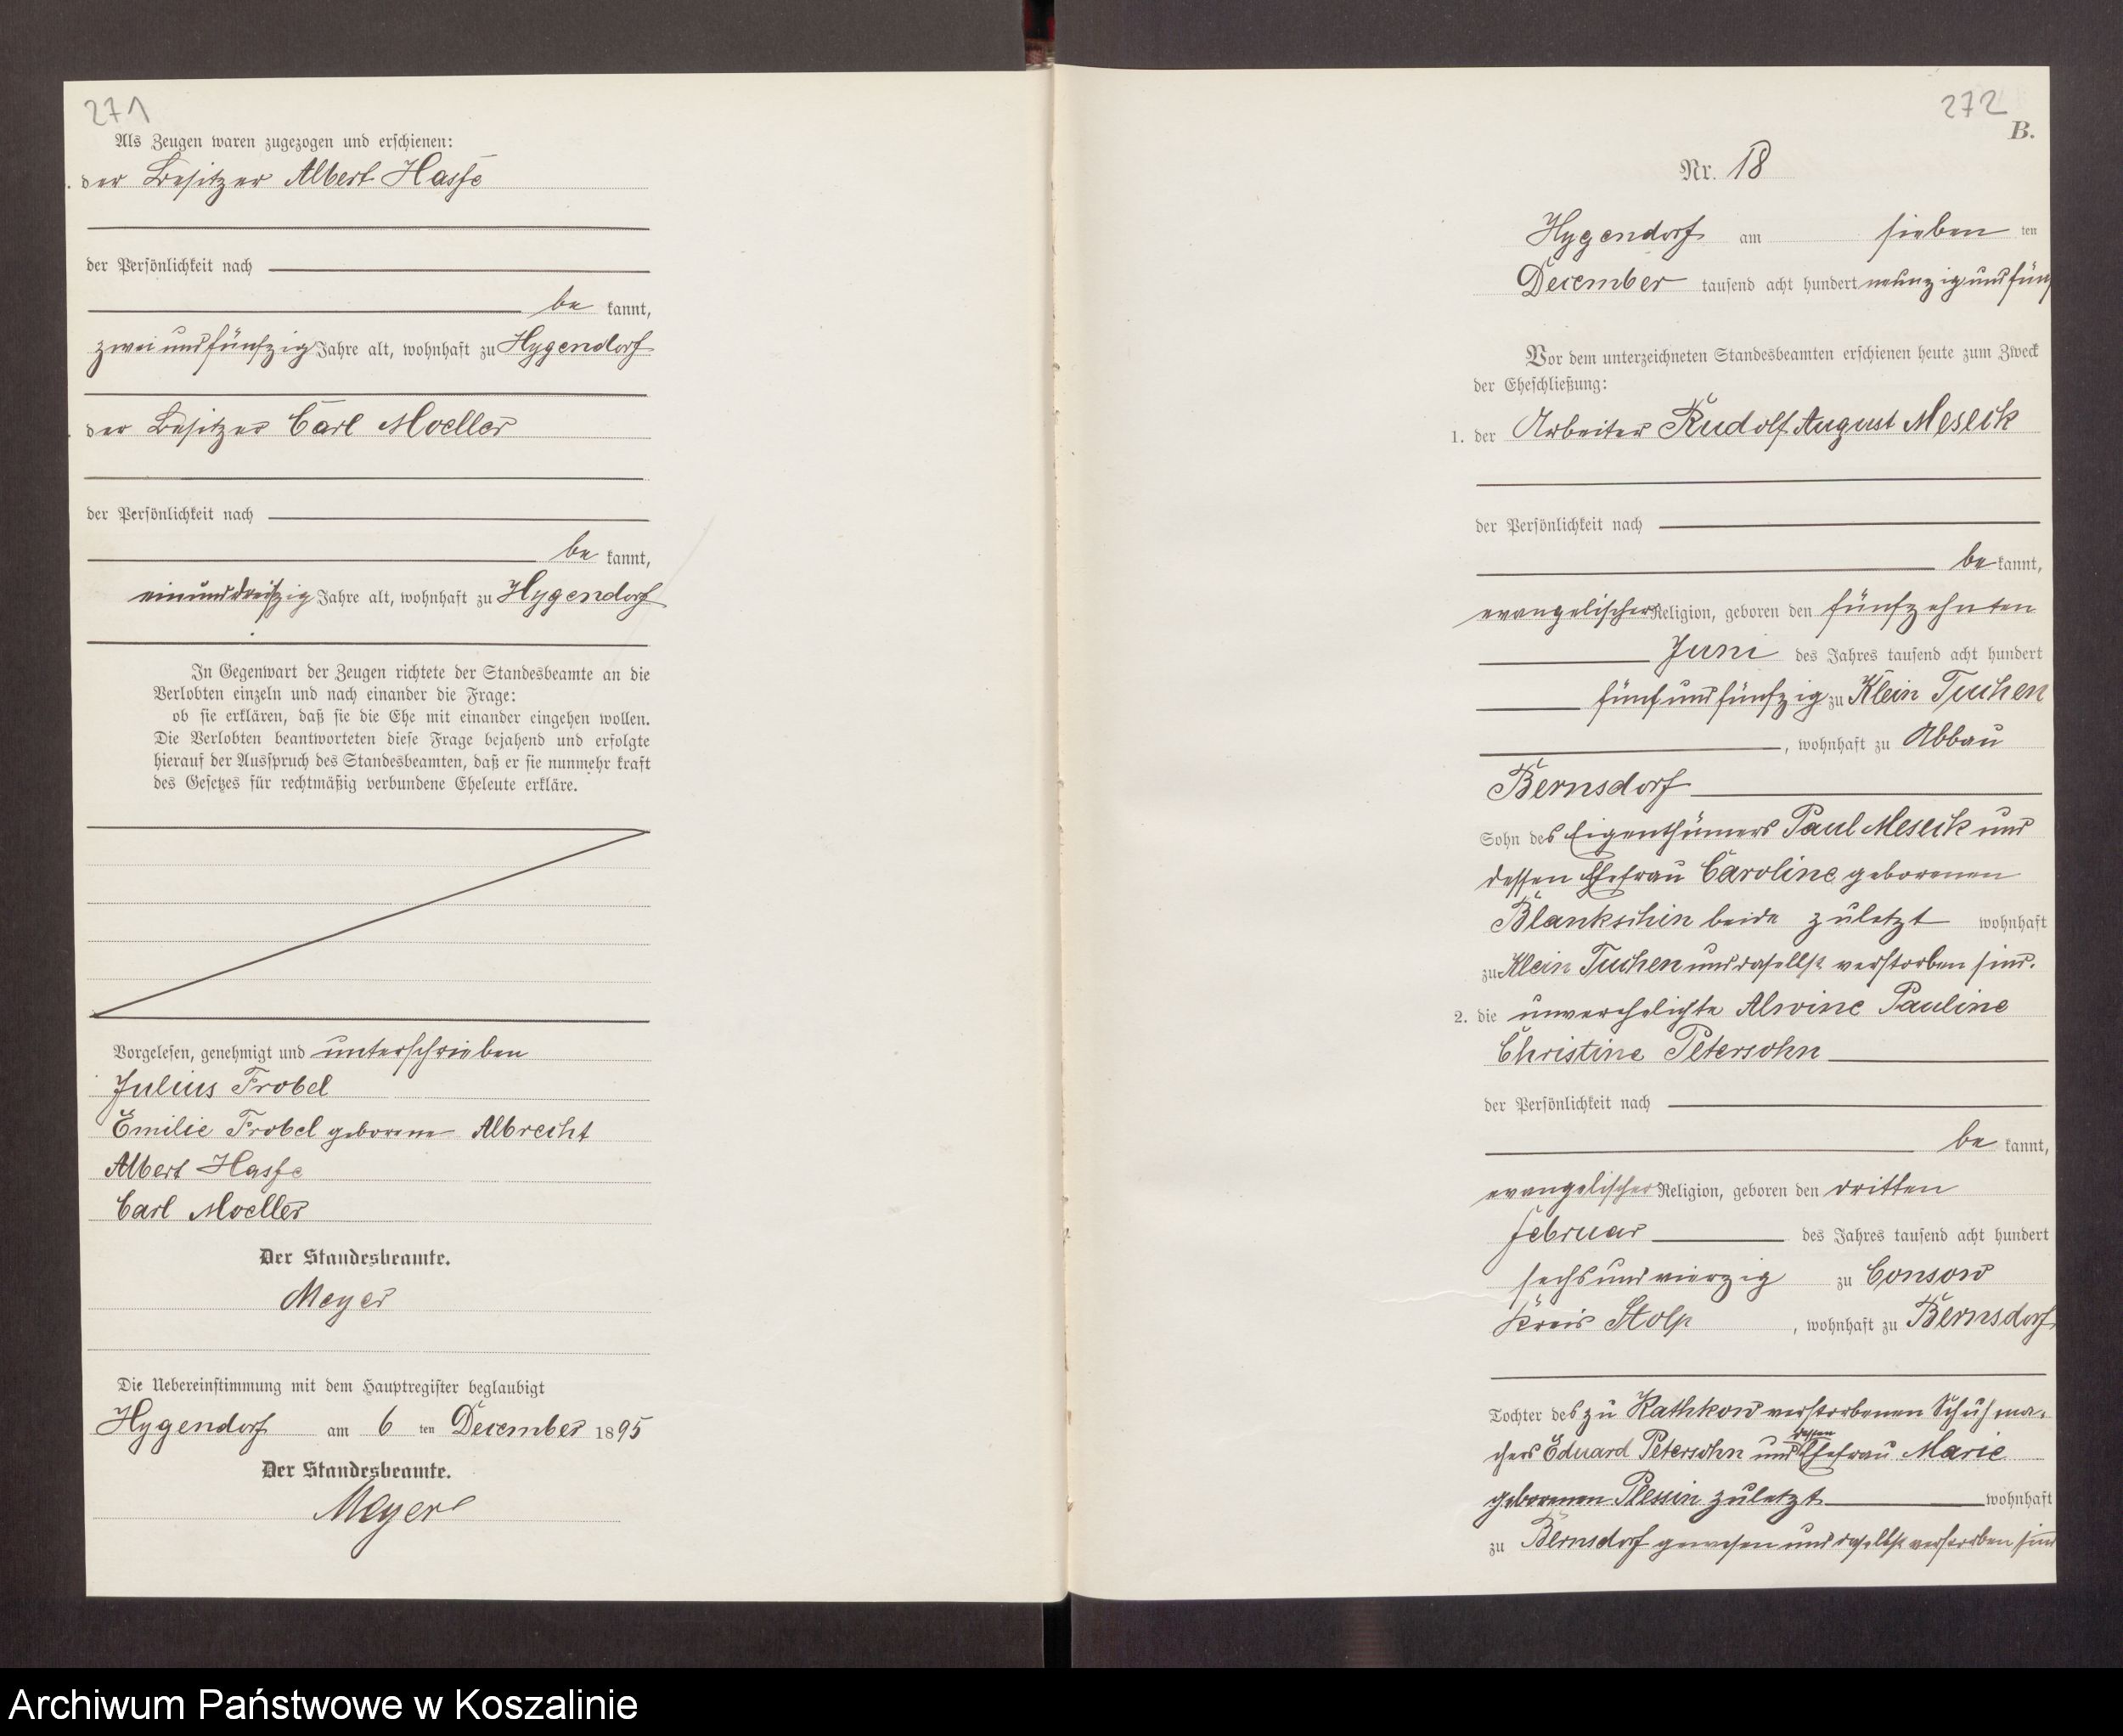 271
Als Zeugen waren zugezogen und erschienen:
der Besitzer Albert Hasse
der Persönlichkeit nach
be kannt,
zweiundfünfzig Jahre alt, wohnhaft zu Hygendorf
der Besitzer Carl Moeller
der Persönlichkeit nach
be kannt,
einunddreißig Jahre alt, wohnhaft zu Hygendorf
In Gegenwart der Zeugen richtete der Standesbeamte an die
Verlobten einzeln und nach einander die Frage:
ob sie erklären, daß sie die Ehe mit einander eingehen wollen.
Die Verlobten beantworteten diese Frage bejahend und erfolgte
hierauf der Ausspruch des Standesbeamten, daß er sie nunmehr kraft
des Gesetzes für rechtmäßig verbundene Eheleute erkläre.
Vorgelesen, genehmigt und unterschrieben
Julius Frobel
Emilie Frobel geborene Albrecht
Albert Hasse
Carl Moeller
Der Standesbeamte.
Meyer
Die Uebereinstimmung mit dem Hauptregister beglaubigt
Hygendorf am 6 ten December 1895
Der Standesbeamte.
Meyer
272
B.
Nr. 18
Hygendorf am sieben ten
December tausend acht hundert neunzig und fünf
Vor dem unterzeichneten Standesbeamten erschienen heute zum Zweck
der Eheschließung:
1. der Arbeiter Rudolf August Meseck
der Persönlichkeit nach
be kannt,
evangelischer Religion, geboren den fünfzehnten
Juni des Jahres tausend acht hundert
fünf und fünfzig zu Klein Tuchen
, wohnhaft zu Abbau
Bernsdorf
Sohn des Eigenthümers Paul Meseck und
dessen Ehefrau Caroline geborenen
Blankschin beide zuletzt wohnhaft
zu Klein Tuchen und daselbst verstorben sind.
2. die unverehelichte Alwine Pauline
Christine Petersohn
der Persönlichkeit nach
be kannt,
evangelischer Religion, geboren den dritten
Februar des Jahres tausend acht hundert
sechs und vierzig zu Consow
Kreis Stolp , wohnhaft zu Bernsdorf
Tochter des zu Rathkow verstorbenen Schuhma-
chers Eduard Petersohn und dessen Ehefrau Marie
geborenen Plessin zuletzt wohnhaft
zu Bernsdorf gewesen und daselbst verstorben sind
Archiwum Państwowe w Koszalinie